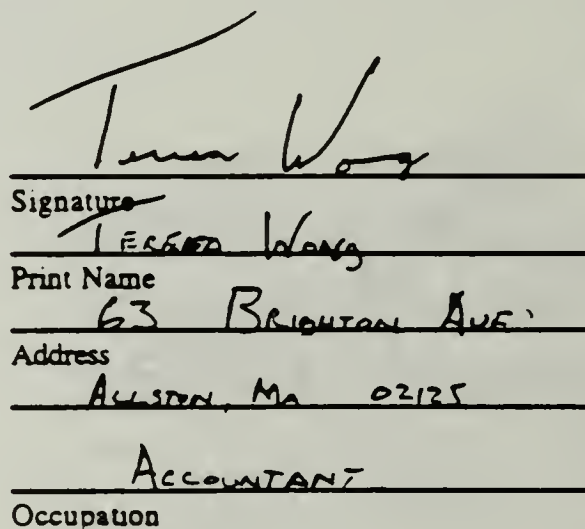 Teresa Wong
Signature
Teresa Wong
Print Name
63 Brighton Ave.
Address
Allston, Ma 02125
Accountant
Occupation